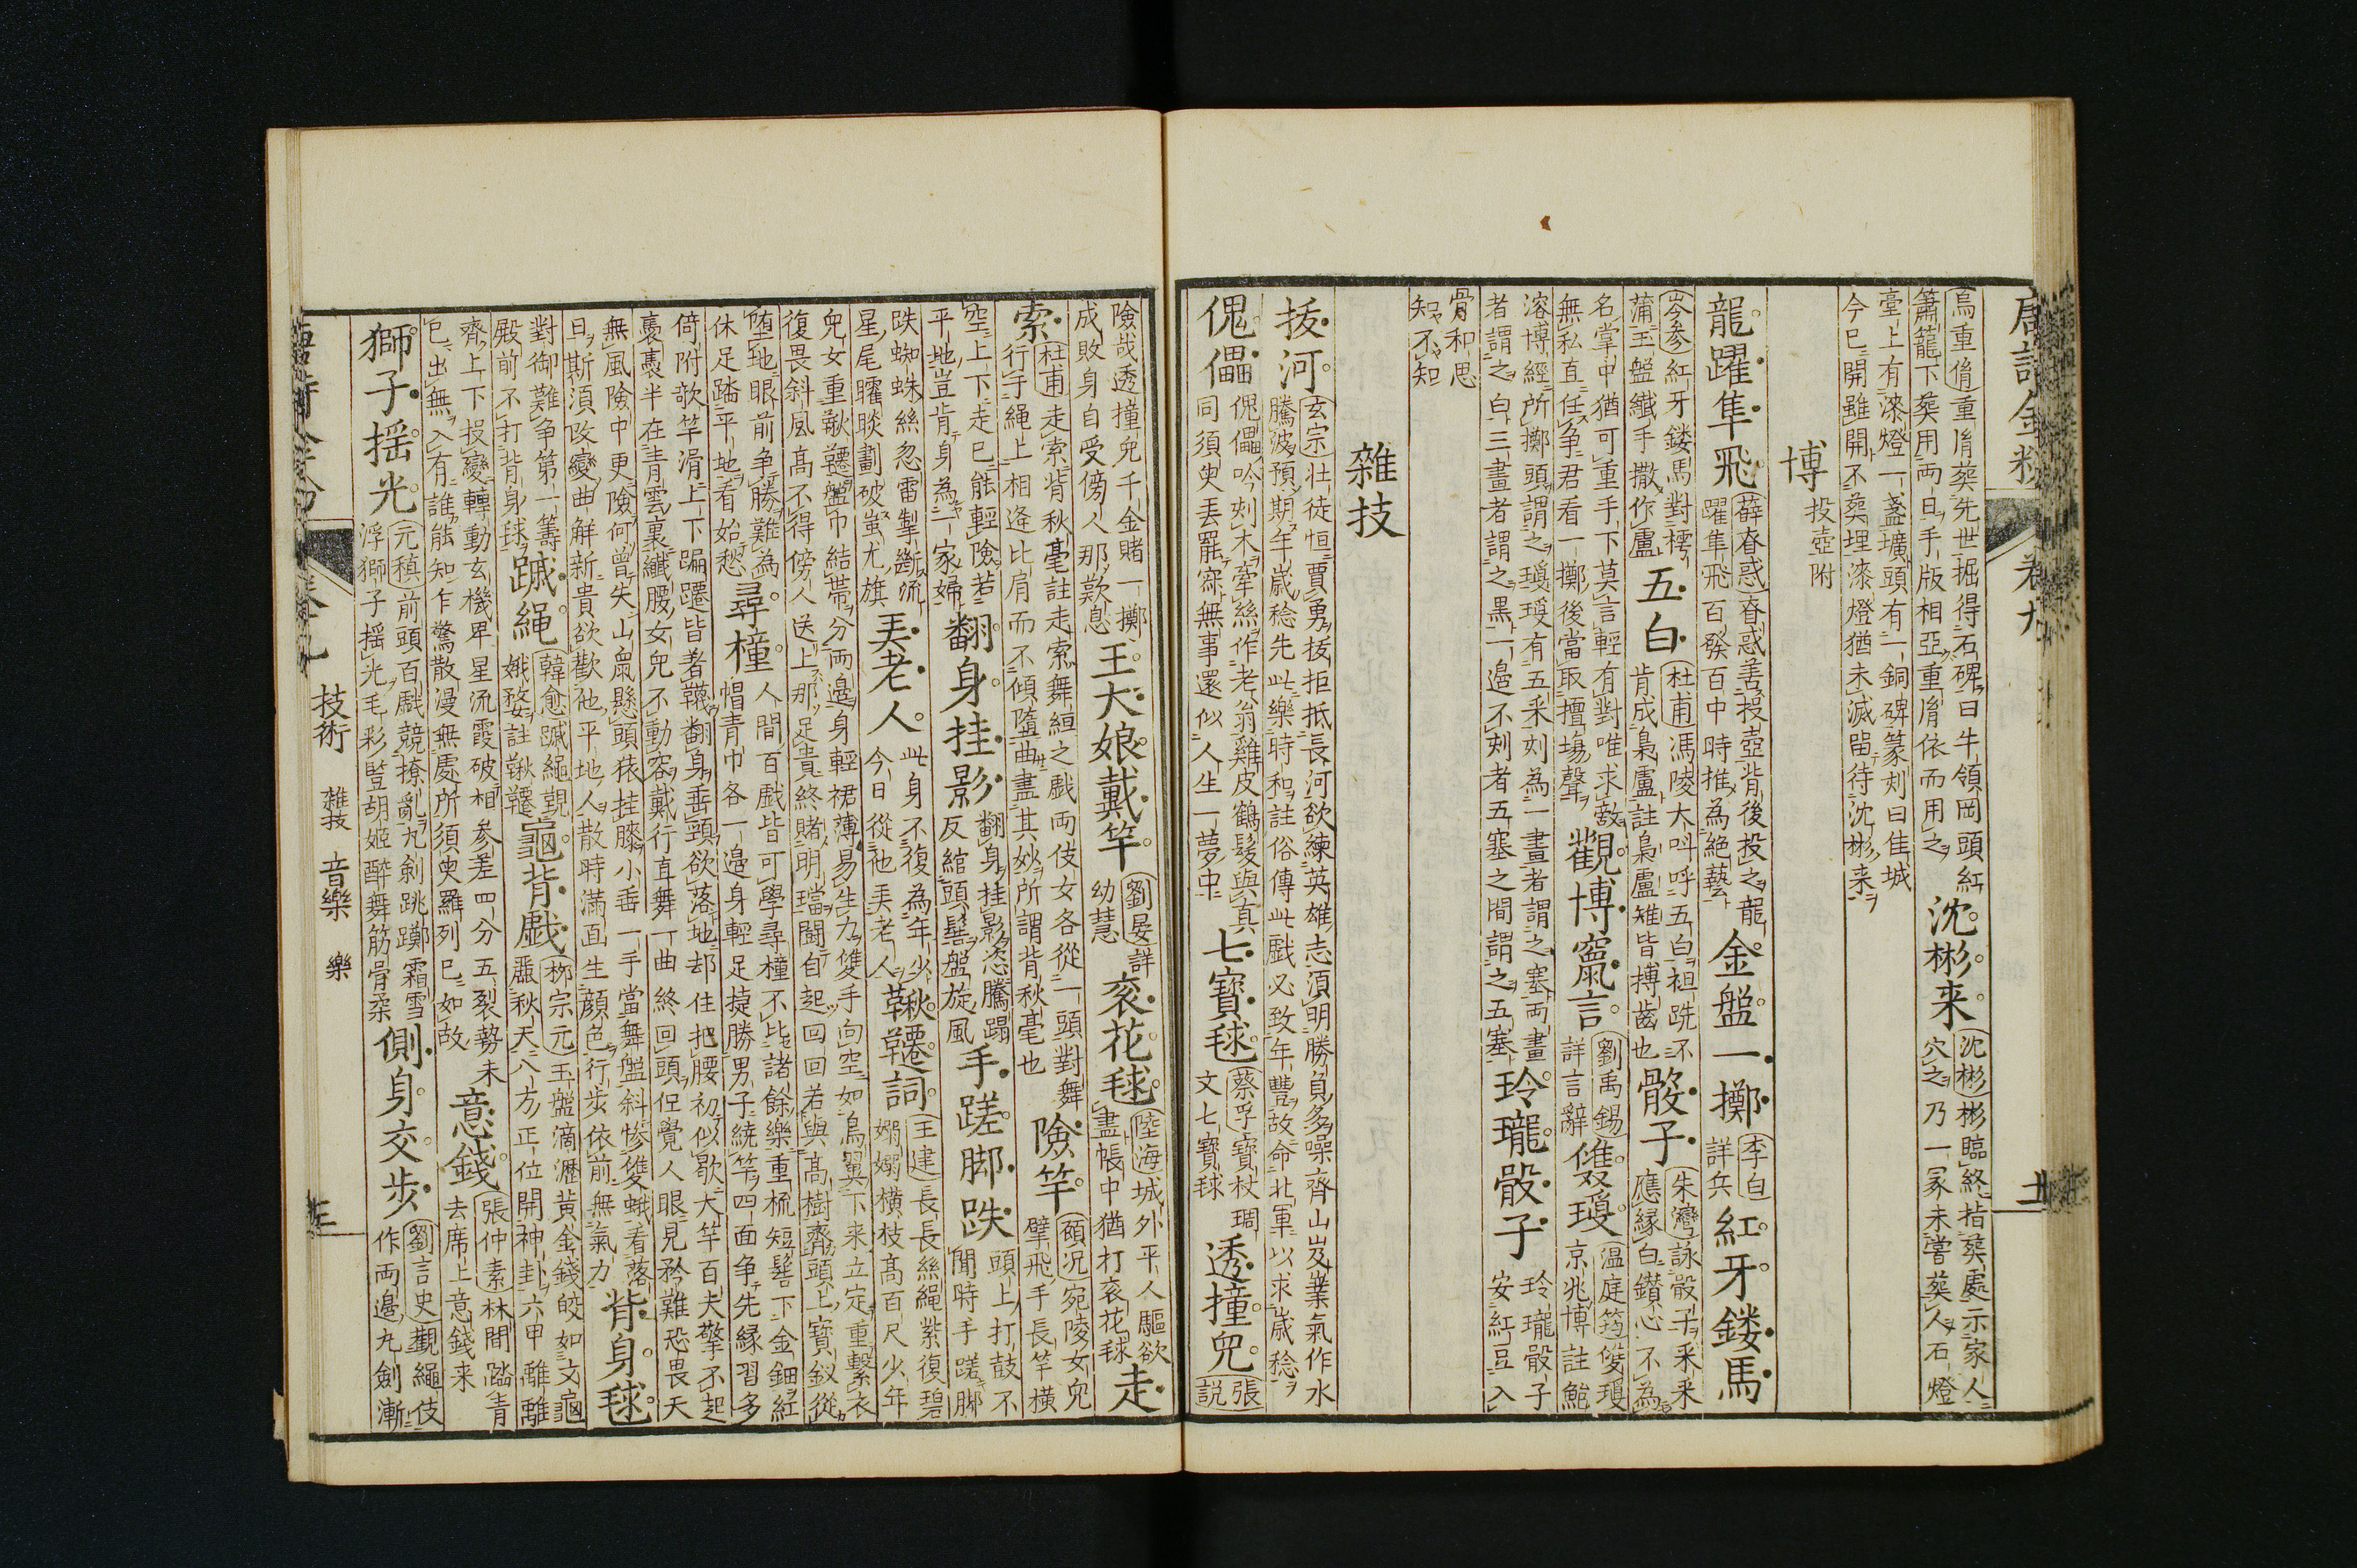 唐詩金粉 卷九
烏重儕重儕葬先世掘得石碑曰牛領岡頭紅
簫籠下葬用両日手版相亞重儕依而用之
沈彬来
沈彬彬臨終指葬處示家人
穴之乃一冢未嘗葬人石燈
臺上有漆燈一盞壙頭有一銅碑篆刻曰佳城
今已開雖開不葬埋漆燈猶未滅畱待沈彬来
博 投壺附
龍躍隼飛
薛昚惑昚惑善投壺背後投之龍
躍隼飛百發百中時推為絶藝
金盤一擲
李白
詳兵
紅牙鏤馬
岑参紅牙鏤馬對樗
蒲玉盤纖手撒作盧
五白
杜甫馮陵大呌呼五白袒跣不
肯成梟盧註梟盧雉皆摶齒也
骰子
朱灣詠骰子采采
應縁白鑚心不為
名掌中猶可重手下莫言輕有對唯求敵
無私直任争君看一擲後當取擅塲聲
觀博窳言
劉禹錫
詳言辭
雙瓊
温庭筠雙瓊
京兆博註鮑
溶博經所擲頭謂之瓊瓊有五采刻為一畫者謂之塞両畫
者謂之白三畫者謂之黒一邉不刻者五塞之間謂之五塞
玲瓏骰子
玲瓏骰子
安紅豆入
骨和思
知不知
雜技
抜河
玄宗壮徒恒賈勇抜拒抵長河欲練英雄志湏明勝負多噪齊山岌嶪氣作水
騰波預期年歳稔先此樂時和註俗傳此戲必致年豐故命北軍以求歳稔
傀儡
傀儡吟刻木牽絲作老翁雞皮鶴髪與真
同須臾丟罷寂無事還似人生一夢中
七寳毬
蔡孚寶杖琱
文七寳毬
透撞兒
張
説
險㦲透撞兒千金賭一擲
成敗身自受傍人那歎息
王大娘戴竿
劉晏詳
幼慧
衮花毬
陸海城外平人驅欲
盡帳中猶打衮花毬
走
索
杜甫走索背秋毫註走索舞絙之戲両伎女各從一頭對舞
行于繩上相逢比肩而不傾隨曲盡其妙所謂背秋毫也
險竿
顧況宛陵女兒
擘飛手長竿横
空上下走已能輕險若
平地豈肯身為一家婦
翻身挂影
翻身挂影恣騰蹋
反綰頭髻盤旋風
手蹉脚跌
頭上打鼓不
聞時手蹉脚
跌蜘蛛絲忽雷掣斷流
星尾矐睒劃破蚩尤旗
美老人
此身不復為年少
今日從他美老人
鞦韆詞
王建長長絲繩紫復碧
嫋嫋横枝髙百尺少年
兒女重鞦韆盤巾結帶分両邉身輕裙薄易生力雙手向空如鳥翼下来立定重繫衣
復畏斜風髙不得傍人送上那足貴終賭明璫鬭自起回回若與髙樹齊頭上寳釵從
堕地眼前争勝難為
休足踏平地看始愁
尋橦
人間百戲皆可學尋橦不比諸餘樂重梳短髻下金鈿紅
帽青巾各一邉身輕足捷勝男子統竿四面争先縁習多
倚附歌竿滑上下蹁躚皆著韈翻身垂頸欲落地却住把腰初似歇大竿百夫擎不起
褭褭半在青雲裏纖腰女兒不動容戴行直舞一曲終回頭但覺人眼見矜難恐畏天
無風險中更險何曾失山鼠懸頭猿挂膝小垂一手當舞盤斜慘雙蛾看落
日斯湏改變曲解新貴欲歡他平地人散時満靣生顔色行歩依前無氣力
背身毬
對御難争第一籌
殿前不打背身毬
蹴繩
韓愈蹴繩覲
娥婺註鞦韆
龜背戲
栁宗元玉盤滴瀝黄金錢皎如文龜
麗秋天八方正位開神卦六甲離離
齊上下投變轉動玄機卑星流霞破相参差四分五裂勢未
已出無入有誰能知乍驚散漫無處所須臾羅列已如故
意錢
張仲素林間踏青
去席上意錢来
獅子揺光
元稹前頭百戲競撩亂丸剣跳躑霜雪
浮獅子揺光毛彩竪胡姬醉舞筋骨柔
側身交歩
劉言史觀繩伎
作両邉丸劍漸
技術 雜技 音樂 樂